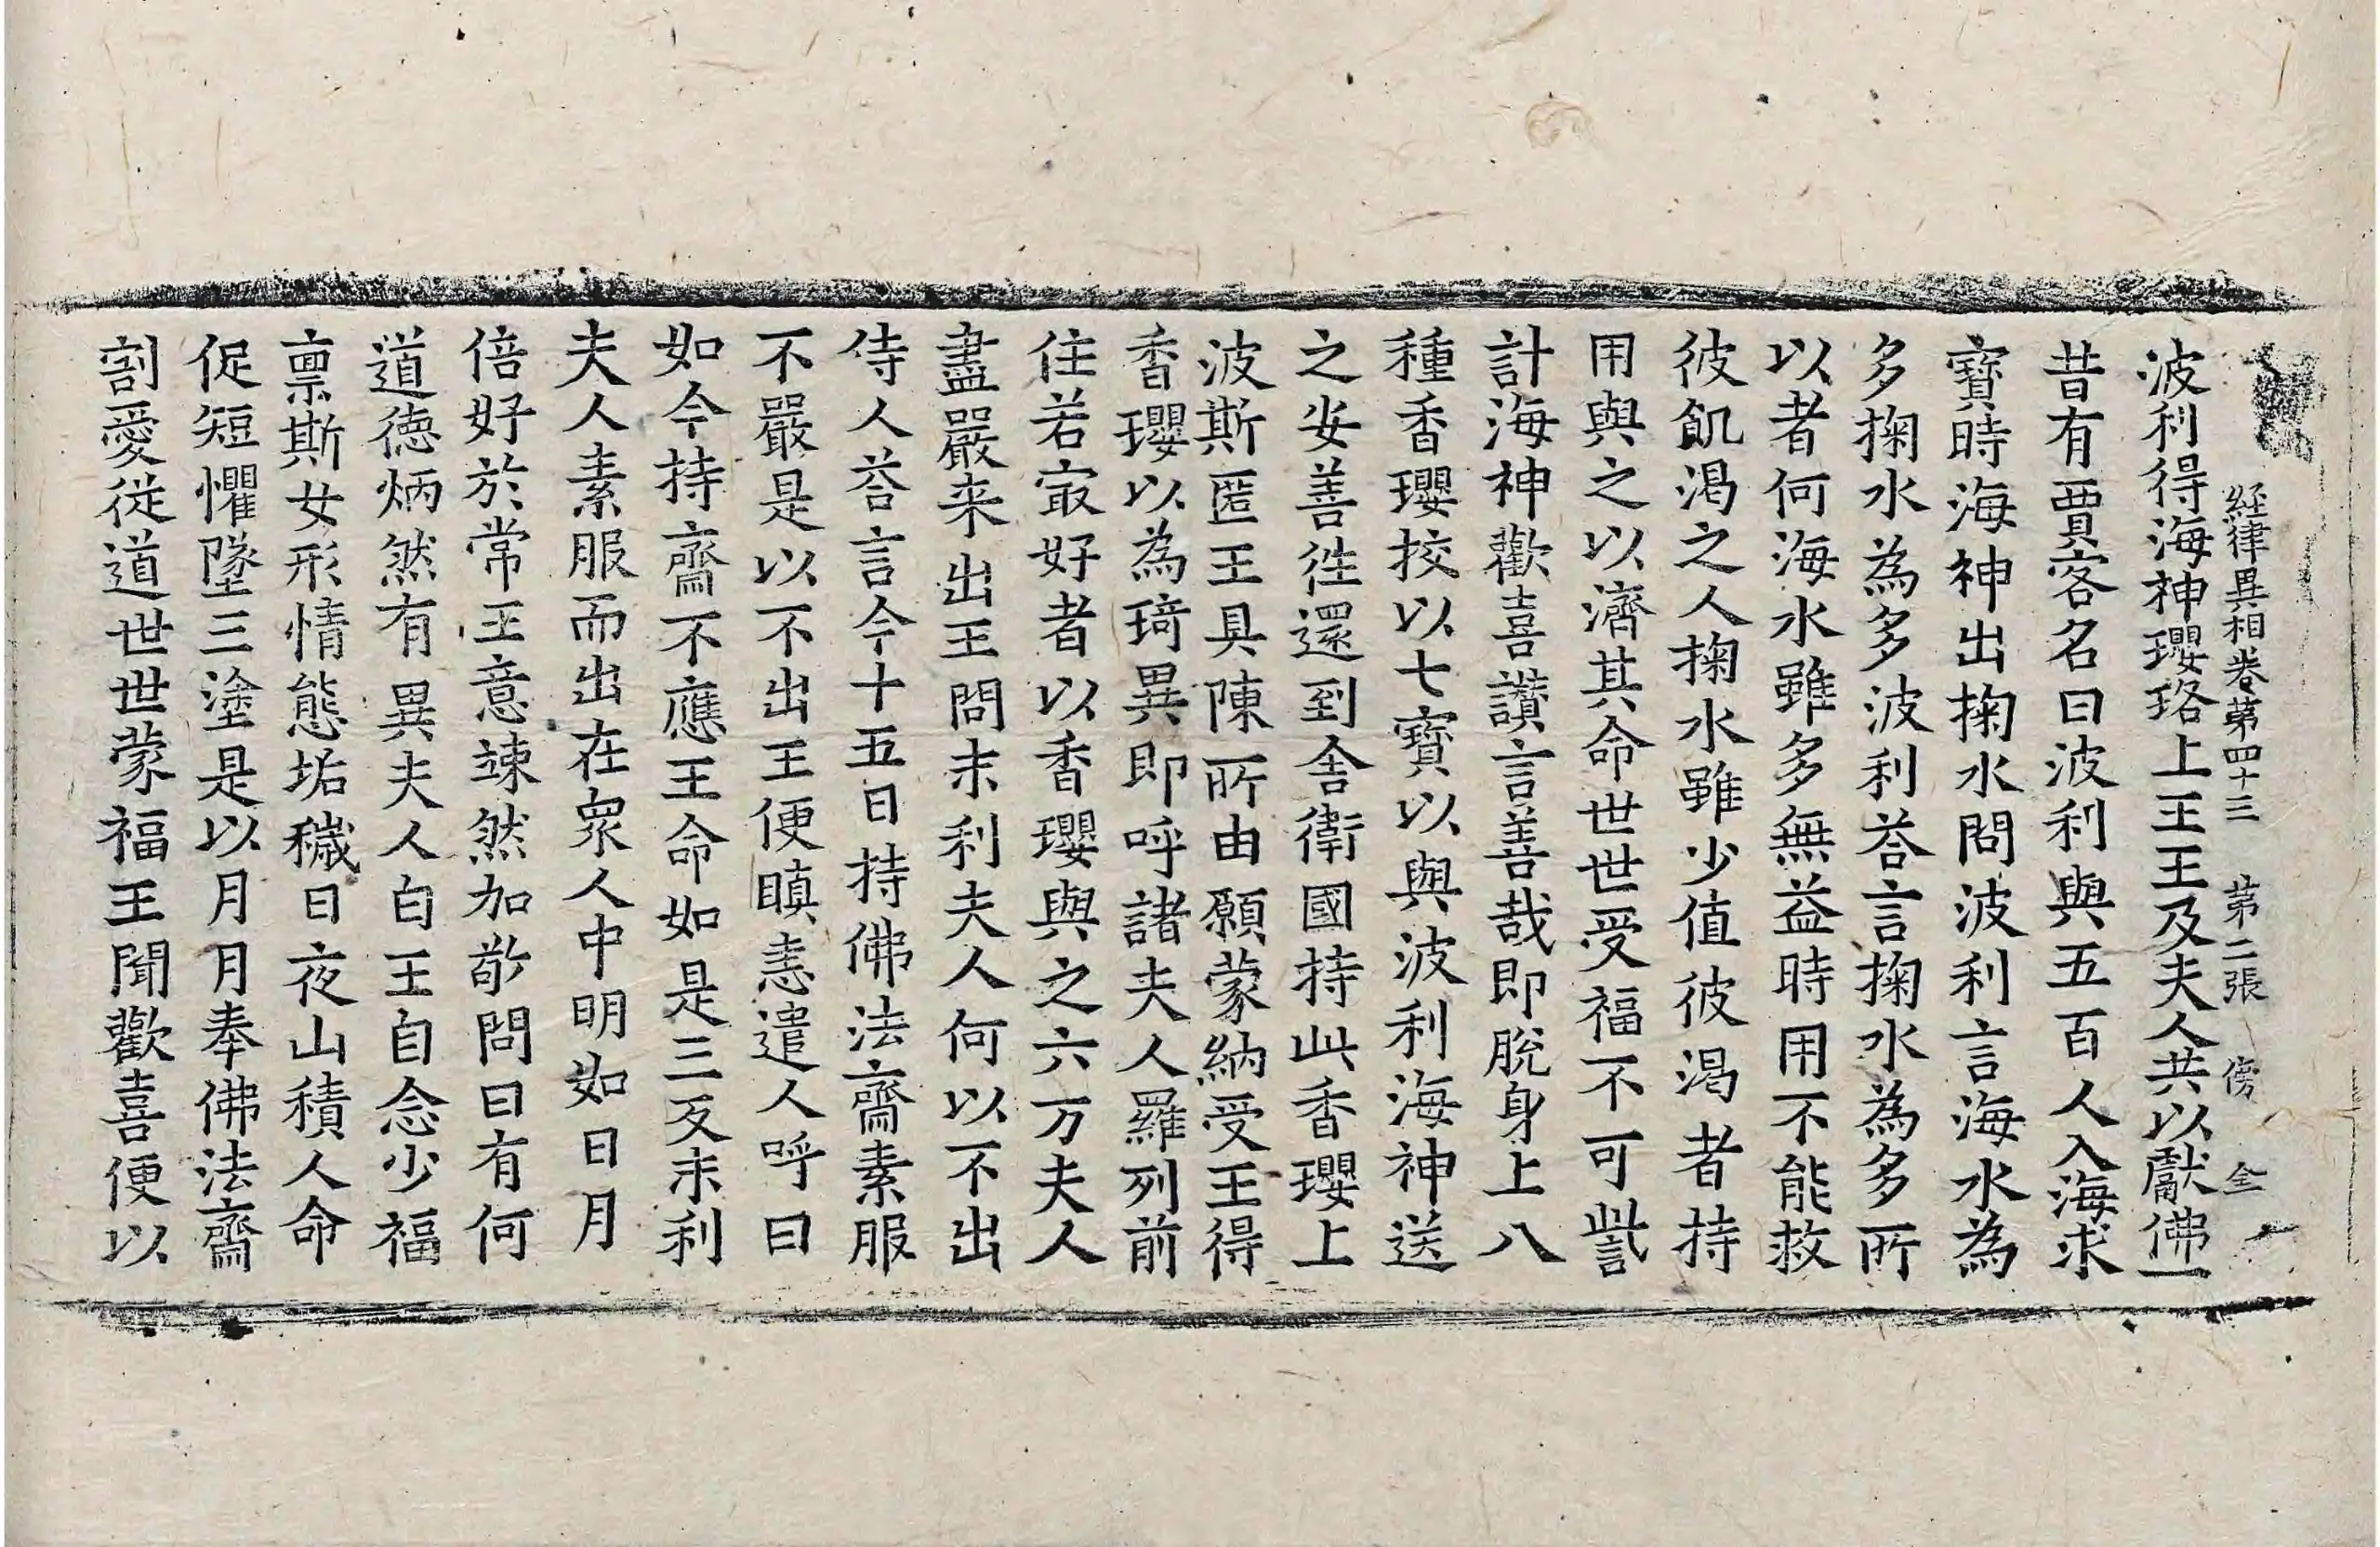 経律異相卷第四十三 第二張 傍 全
波利得海神瓔珞上王王及夫人共以獻佛一
昔有賈客名曰波利與五百人入海求
寶時海神出掬水問波利言海水為
多掬水為多波利荅言掬水為多所
以者何海水雖多無益時用不能救
彼飢渴之人掬水雖少值彼渴者持
用與之以濟其命世世受福不可訾
計海神歡喜讃言善哉即脫身上八
種香瓔挍以七寶以與波利海神送
之安善徃還到舍衛國持此香瓔上
波斯匿王具陳所由願蒙納受王得
香瓔以為琦異即呼諸夫人羅列前
住若㝡好者以香瓔與之六万夫人
盡嚴来出王問末利夫人何以不出
侍人荅言今十五日持佛法齋素服
不嚴是以不出王便瞋恚遣人呼曰
如今持齋不應王命如是三反末利
夫人素服而出在衆人中明如日月
倍好於常王意竦然加敬問曰有何
道德炳然有異夫人白王自念少福
禀斯女形情態垢穢日夜山積人命
促短懼墜三塗是以月月奉佛法齋
割愛從道世世蒙福王聞歡喜便以